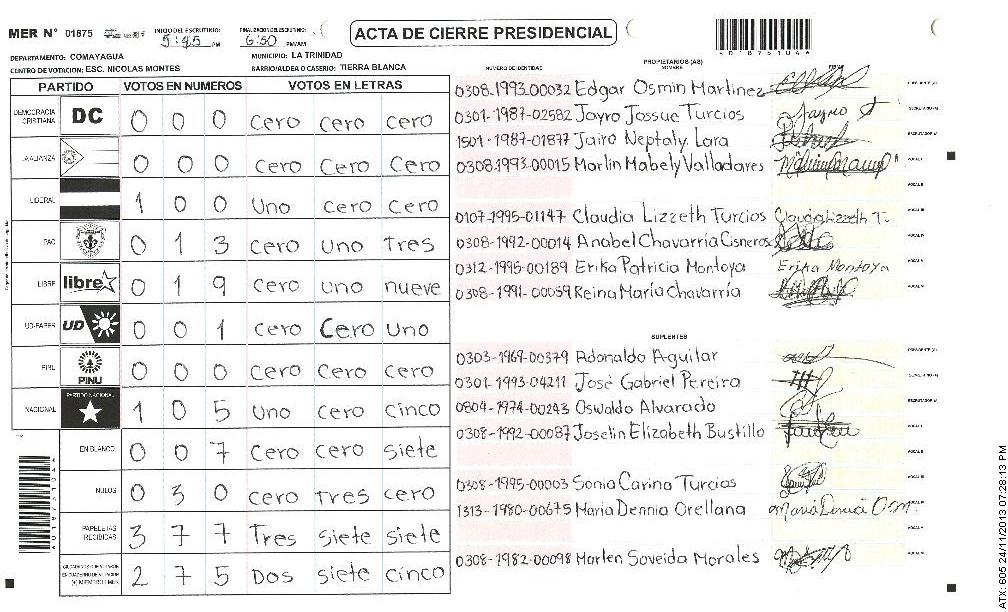 MER N° 01875
INICIO DEL ESCRUTINIO: 5:45 PM
FINALIZACION DEL ESCRUTINIO: 6:50 PM/AM
ACTA DE CIERRE PRESIDENCIAL
AD187510AA
DEPARTAMENTO: COMAYAGUA
MUNICIPIO: LA TRINIDAD
CENTRO DE VOTACION: ESC. NICOLAS MONTES
BARRIO/ALDEA O CASERIO: TIERRA BLANCA
PARTIDO VOTOS EN NUMEROS VOTOS EN LETRAS
DEMOCRACIA CRISTIANA DC 0 0 0 cero cero cero
LA ALIANZA 0 0 0 cero cero cero
LIBERAL 1 0 0 uno cero cero
PAC 0 1 3 cero uno tres
LIBRE libre 0 1 9 cero uno nueve
UD-FAPER UD 0 0 1 cero cero uno
PINU PINU 0 0 0 cero cero cero
NACIONAL PARTIDO NACIONAL 1 0 5 uno cero cinco
EN BLANCO 0 0 7 cero cero siete
NULOS 0 3 0 cero tres cero
PAPELETAS RECIBIDAS 3 7 7 Tres siete siete
2 7 5 Dos siete cinco
NUMERO DE IDENTIDAD
PROPIETARIOS (AS)
NOMBRE
FIRMA
0308-1993-00032 Edgar Osmin Martinez PRESIDENTE (A)
0301-1987-02582 Jayro Jossue Turcios Jayro SECRETARIO (A)
1501-1987-01877 Jairo Neptaly Lara ESCRUTADOR (A)
0308-1993-00015 Marlin Mabely Valladares VOCAL I
VOCAL II
0107-1995-01147 Claudia Lizzeth Turcios Claudia Lizzeth T. VOCAL III
0308-1992-00014 Anabel Chavarría Cisneros VOCAL IV
0312-1995-00189 Erika Patricia Montoya Erika Montoya VOCAL V
0308-1991-00059 Reina María Chavarría VOCAL VI
SUPLENTES
0303-1969-00379 Adonaldo Aguilar PRESIDENTE (A)
0301-1993-04211 José Gabriel Pereira SECRETARIO (A)
0804-1974-00243 Oswaldo Alvarado ESCRUTADOR (A)
0308-1992-00087 Joselin Elizabeth Bustillo VOCAL I
VOCAL II
0308-1995-00003 Sonia Carina Turcios VOCAL III
1313-1980-00675 Maria Dennia Orellana VOCAL IV
VOCAL V
0308-1982-00098 Marlen Soveida Morales VOCAL VI
ATX: 605 24/11/2013 07:28:13 PM